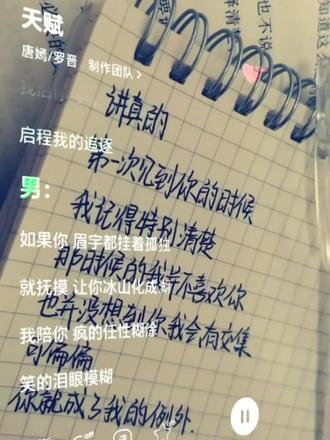 天赋
唐嫣/罗晋 制作团队
也不说
讲真的
启程我的追逐
第一次见到你的时候
男：
我记得特别清楚
如果你 眉宇都挂着孤独
那时候的我并不喜欢你
就抚摸 让你冰山化成
也并没想到你我会有交集
我陪你 疯的任性糊涂
可偏偏
笑的泪眼模糊
你就成了我的例外.